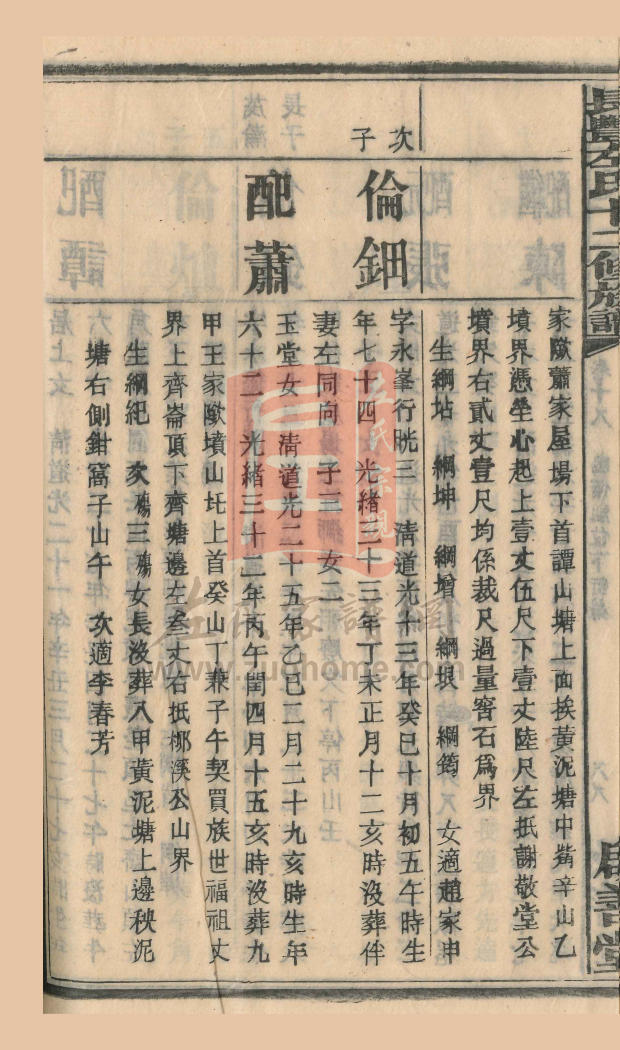 長豐左氏十二修族譜
卷十八
六八
啟善堂
家歐蕭家屋場下首譚山塘上面挨黃泥塘中觜辛山乙
墳界憑坐心起上壹丈伍尺下壹丈陸尺左抵謝敬堂公
墳界右貳丈壹尺均係裁尺過量窖石爲界
生綱坫 綱坤 綱增 綱垠 綱筠 女適趙家申
次子
倫鈿
字永峯行晄三 清道光十三年癸巳十月初五午時生
年七十四 光緒三十三年丁未正月十二亥時沒葬伴
妻左同向 子三 女二
配蕭
玉堂女 清道光二十五年乙巳二月二十九亥時生年
六十二 光緒三十二年丙午閏四月十五亥時沒葬九
甲王家歐墳山圫上首癸山丁兼子午契買族世福祖丈
界上齊崙頂下齊塘邊左叁丈右抵梛溪公山界
生綱紀 次殤三殤女長沒葬八甲黃泥塘上邊秧泥
塘右側鉗窩子山午 次適李春芳
左氏宗親
www.zuohome.com